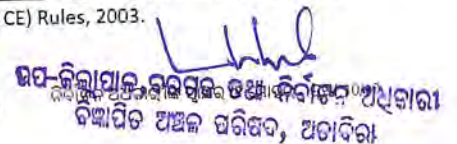 CE) Rules, 2003.
ଉପ-ଜିଲ୍ଲାପାଳ, ବରଗଡ଼ ତଥା ନିର୍ବାଚନ ଅଧିକାରୀ
ବିଜ୍ଞାପିତ ଅଞ୍ଚଳ ପରିଷଦ, ଅତାବିରା